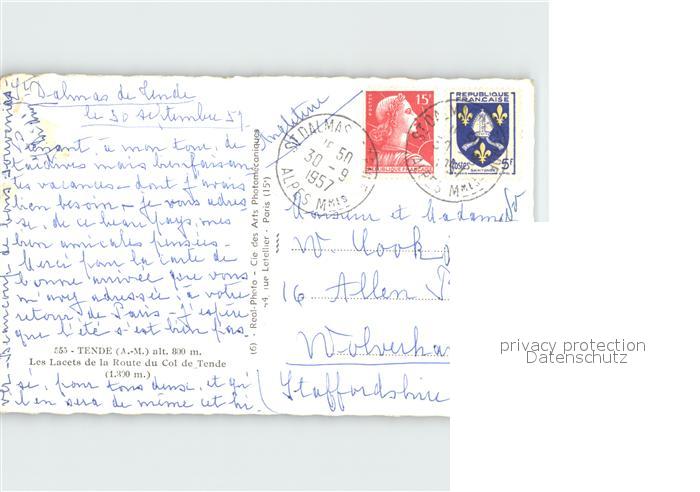 St Dalmas de Tende
le 30 septembre 57
Jouissant à mon tour, de
tardives mais bienfaisantes
vacances - dont j'avais
bien besoin - je vous adres-
se, de ce beau pays, mes
bien amicales pensées -
Merci pour la carte de
bonne arrivée que vous
m'avez adressée, à votre
retour de Paris - J'espère
que l'été s'est bien pas-
553 - TENDE (A.-M.) alt. 800 m.
Les Lacets de la Route du Col de Tende
(1.300 m.)
sé, pour tous deux, et qu'il
en sera de même cet hi-
ver - Beaucoup de bons souvenirs
(6) - Real-Photo - Cie des Arts Photomécaniques
44, rue Letellier - Paris (15e)
Angleterre
ST DALMAS
50
30 - 9
1957
ALPES Mmes
POSTES
15F
REPUBLIQUE FRANÇAISE
REPUBLIQUE
FRANÇAISE
Postes
5F
SAINTONGE
ST DALMAS
ALPES Mmes
Monsieur et Madame
W Cook
16 Allen
Wolverha
Staffordshire
privacy protection
Datenschutz